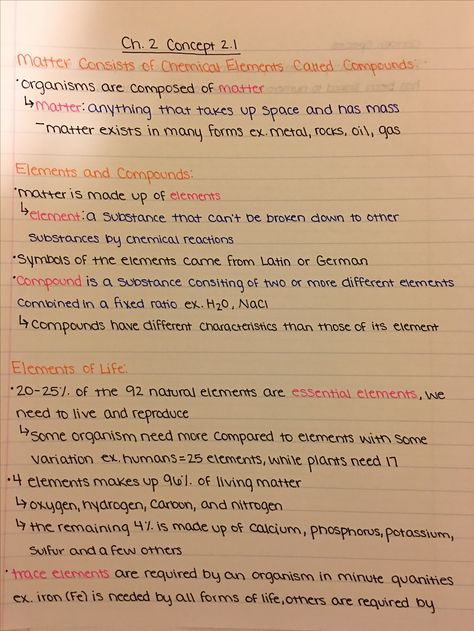 Ch. 2 Concept 2.1
Matter Consists of Chemical Elements Called Compounds:
• organisms are composed of matter
↳ matter: anything that takes up space and has mass
- matter exists in many forms ex. metal, rocks, oil, gas
Elements and Compounds:
• matter is made up of elements
↳ element: a substance that can't be broken down to other
substances by chemical reactions
• Symbols of the elements came from Latin or German
• Compound is a substance consiting of two or more different elements
combined in a fixed ratio ex. H₂O, NaCl
↳ Compounds have different characteristics than those of its element
Elements of Life:
• 20-25% of the 92 natural elements are essential elements, we
need to live and reproduce
↳ Some organism need more compared to elements with some
variation ex. humans = 25 elements, while plants need 17
• 4 elements makes up 96% of living matter
↳ oxygen, hydrogen, carbon, and nitrogen
↳ the remaining 4% is made up of calcium, phosphorus, potassium,
Sulfur and a few others
• trace elements are required by an organism in minute quanities
ex. iron (Fe) is needed by all forms of life, others are required by